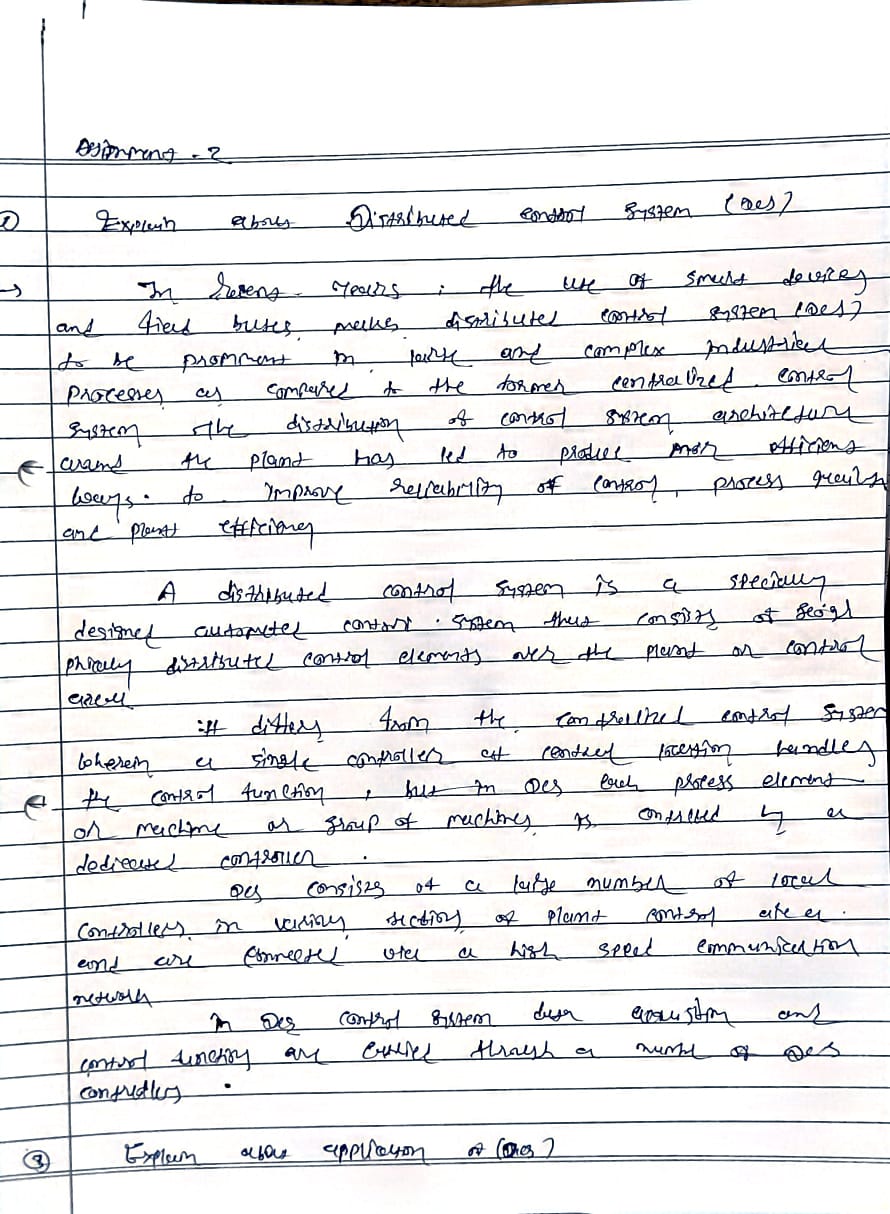 Assignment - 2
① Explain about Distributed control system (DCS)
→ In recent years, the use of smart devices
and field buses makes distributed control system (DCS)
to be prominent in large and complex industrial
processes as compared to the former centralized control
system the distribution of control system architecture
around the plant has led to produce more efficient
ways to improve reliability of control, process quality
and plant efficiency
A distributed control system is a specially
designed automated control system that consists of geogra
phically distributed control elements over the plant or control
area
It differs from the centralized control system
wherein a single controller at central location handles
the control function, but in DCS each process element
or machine or group of machines is controlled by a
dedicated controller.
DCS consists of a large number of local
controllers in various section of plant control area
and are connected via a high speed communication
network
In DCS control system data acquisition and
control function are carried through a number of DCS
controllers.
③ Explain about application of (DCS)